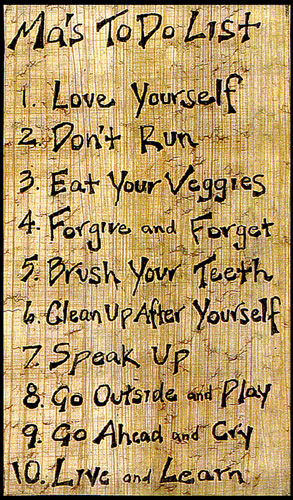 Ma's To Do List
1. Love Yourself
2. Don't Run
3. Eat Your Veggies
4. Forgive and Forget
5. Brush Your Teeth
6. Clean Up After Yourself
7. Speak Up
8. Go Outside and Play
9. Go Ahead and Cry
10. Live and Learn